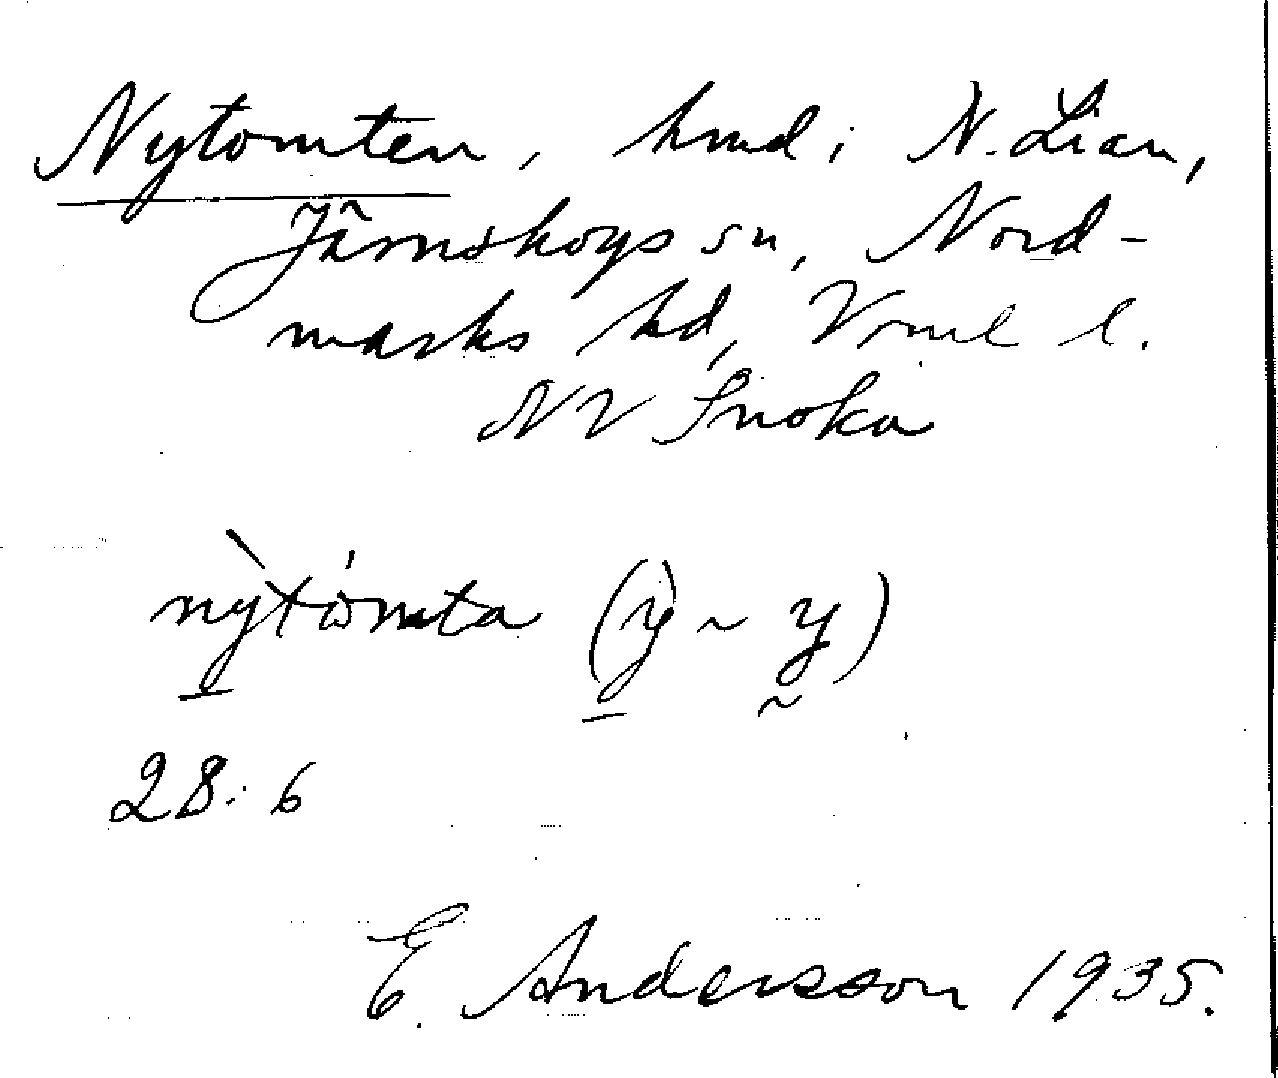 Nytomten, hmd i N. Lian,
Järnskogs sn, Nord-
marks hd, Vrml l.
NV Snoka
nỳtómta (y ~ y)
28:6
E. Andersson 1935.